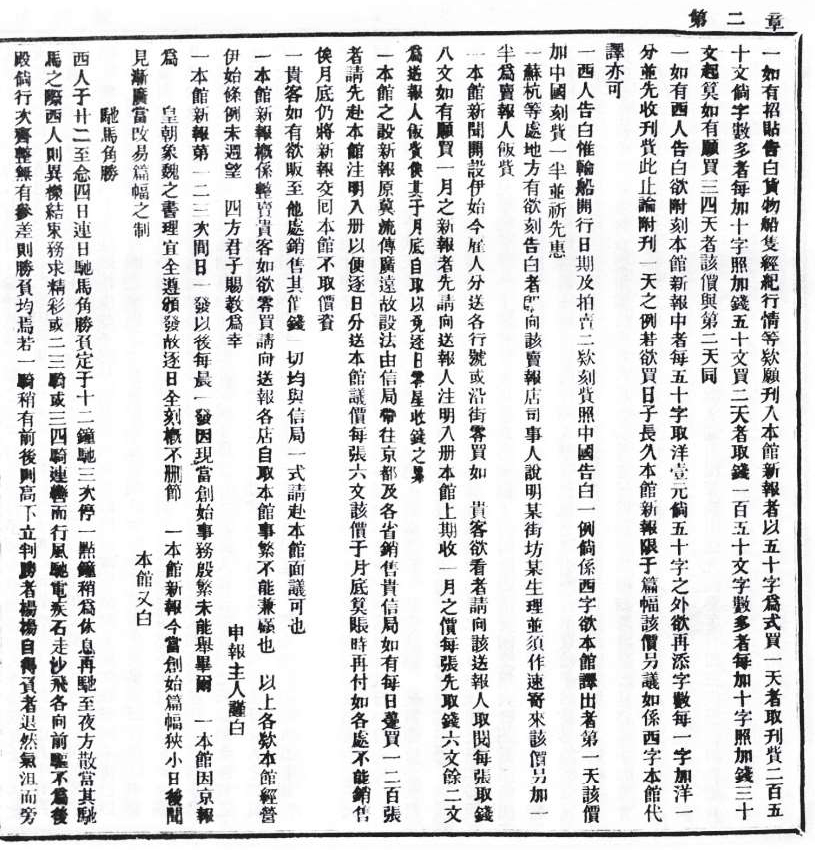 第二章
一如有招貼告白貨物船隻經紀行情等欵願刊入本館新報者以五十字爲式買一天者取刊貲二百五
十文倘字數多者每加十字照加錢五十文買二天者取錢一百五十文字數多者每加十字照加錢三十
文起算如有願買三四天者該價與第二天同
一如有西人告白欲附刻本館新報中者每五十字取洋壹元倘五十字之外欲再添字數每一字加洋一
分並先收刊貲此止論附刊一天之例若欲買日子長久本館新報限于篇幅該價另議如係西字本館代
譯亦可
一西人告白惟輪船開行日期及拍賣二欵刻貲照中國告白一例倘係西字欲本館譯出者第一天該價
加中國刻貲一半並祈先惠
一蘇杭等處地方有欲刻告白者卽向該賣報店司事人說明某街坊某生理並須作速寄來該價另加一
半爲賣報人飯貲
一本館新聞開設伊始今雇人分送各行號或沿街零買如 貴客欲看者請向該送報人取閱每張取錢
八文如有願買一月之新報者先請向送報人注明入册本館上期收一月之價每張先取錢六文餘二文
爲送報人飯貲俟其于月底自取以免逐日零星收錢之累
一本館之設新報原冀流傳廣遠故設法由信局帶往京都及各省銷售貴信局如有每日躉買一二百張
者請先赴本館注明入册以便逐日分送本館議價每張六文該價于月底算賬時再付如各處不能銷售
俟月底仍將新報交囘本館不取價資
一貴客如有欲販至他處銷售其價錢一切均與信局一式請赴本館面議可也
一本館新報槪係整賣貴客如欲零買請向送報各店自取本館事繁不能兼顧也 以上各欵本館經營
伊始條例未週望 四方君子賜敎爲幸
申報主人謹白
一本館新報第一二三次間日一發以後每晨一發因現當創始事務殷繁未能舉畢爾 一本館因京報
爲 皇朝象魏之書理宜全遵頒發故逐日全刻槪不删節 一本館新報今當創始篇幅狹小日後聞
見漸廣當改易篇幅之制
本館又白
馳馬角勝
西人于廿二至念四日連日馳馬角勝負定于十二鐘馳三次停一點鐘稍爲休息再馳至夜方散當其馳
馬之際西人則異樣結束務求精彩或二三騎或三四騎連轡而行風馳電疾石走沙飛各向前驅不爲後
殿倘行次齊整無有參差則勝負均焉若一騎稍有前後則高下立判勝者揚揚自得負者退然氣沮而旁